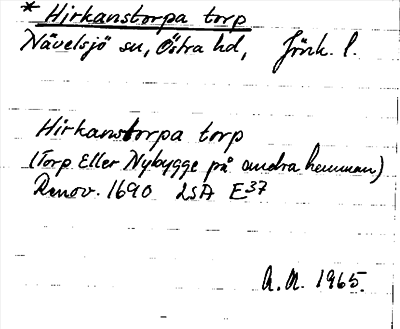 * Hirkanstorpa torp
Nävelsjö sn, Östra hd, Jönk. l.
Hirkanstorpa torp
(Torp Eller Nybygge på andra hemman)
Renov. 1690 LSA E37
A.A. 1965.